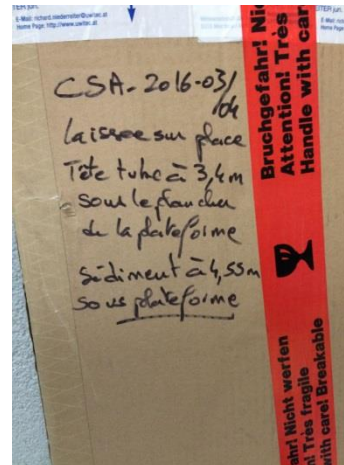 E-Mail: richard.niederreiter@uwitec.at
Home Page: http://www.uwitec.at
CSA-2016-03/
04
laissee sur place
Tête tube à 3,4m
sous le plancher
de la plateforme
sédiment à 4,55m
sous plateforme
Bruchgefahr! Nic
Attention! Très
Handle with care!
ahr! Nicht werfen
n! Très fragile
with care! Breakable